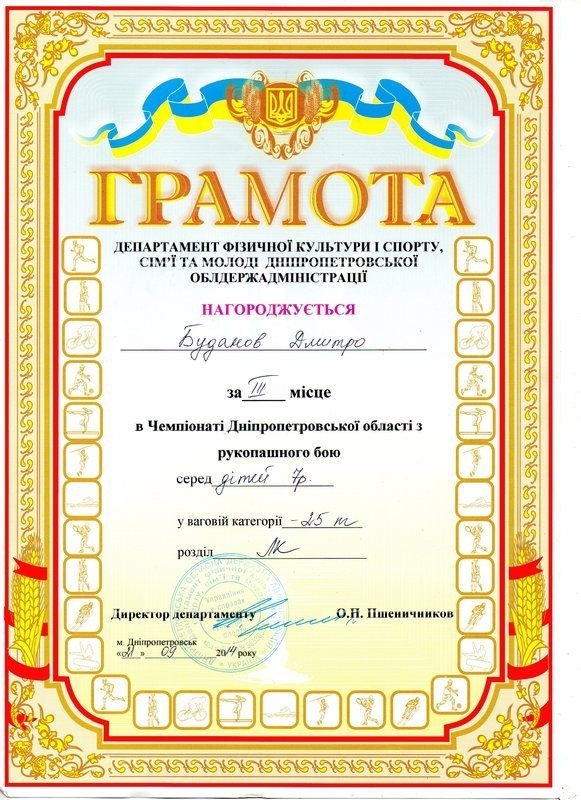 ГРАМОТА
ДЕПАРТАМЕНТ ФІЗИЧНОЇ КУЛЬТУРИ І СПОРТУ,
СІМ'Ї ТА МОЛОДІ ДНІПРОПЕТРОВСЬКОЇ
ОБЛДЕРЖАДМІНІСТРАЦІЇ
НАГОРОДЖУЄТЬСЯ
Буданов Дмитро
за III місце
в Чемпіонаті Дніпропетровської області з
рукопашного бою
серед дітей 7р.
у ваговій категорії -25 кг
розділ ЛК
Директор департаменту О.Н. Пшеничников
м. Дніпропетровськ
«21» 09 2014 року